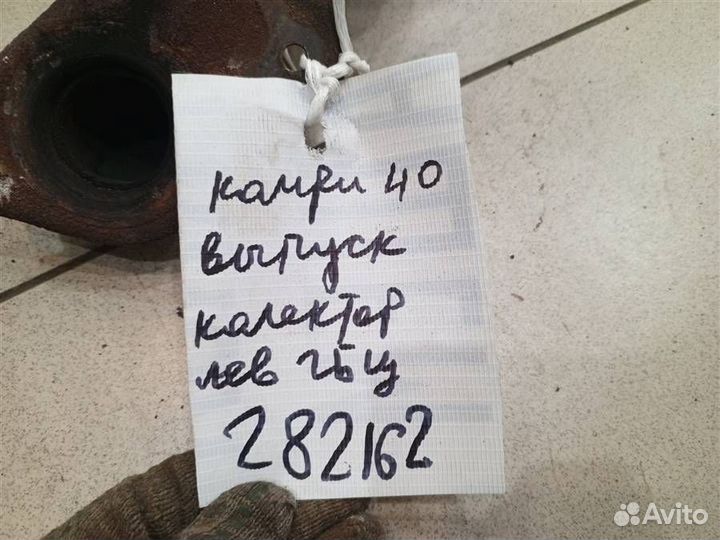 камри 40
выпуск
калектор
лев гбц
282162
Avito